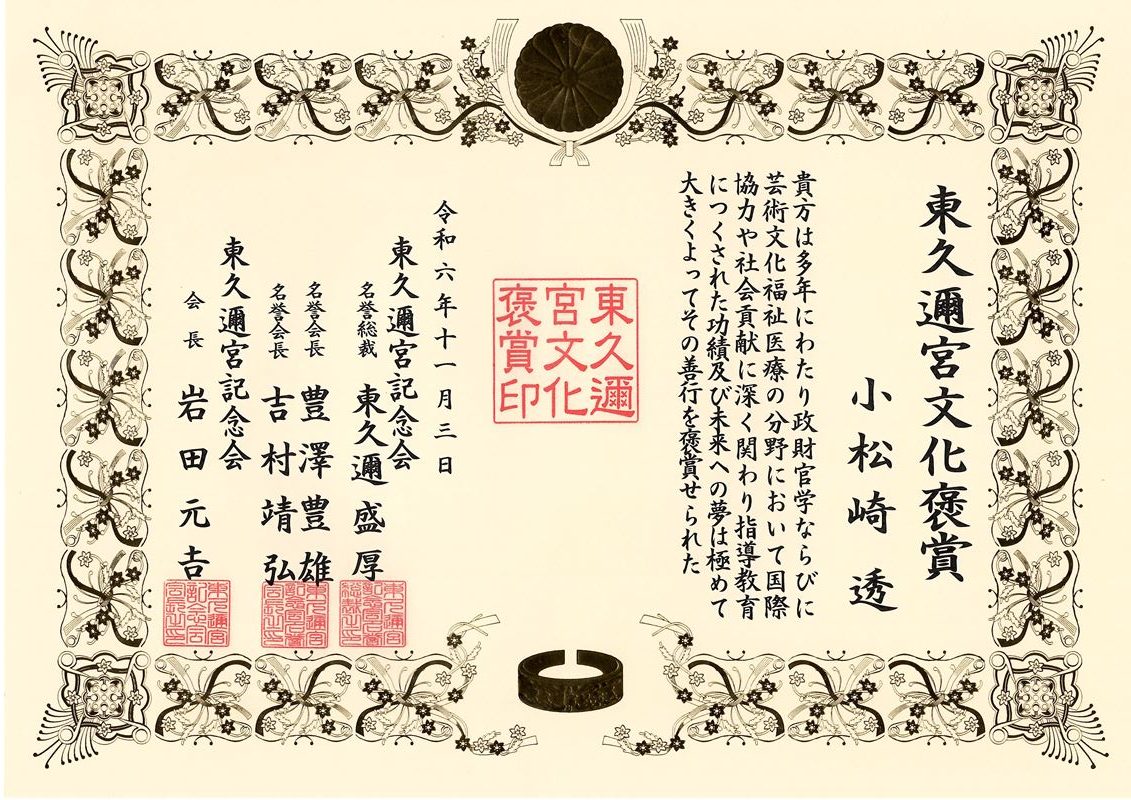 東久邇宮文化褒賞
小松崎 透
貴方は多年にわたり政財官学ならびに
芸術文化福祉医療の分野において国際
協力や社会貢献に深く関わり指導教育
につくされた功績及び未来への夢は極めて
大きくよってその善行を褒賞せられた
東久邇
宮文化
褒賞印
令和六年十一月三日
東久邇宮記念会
名誉総裁 東久邇盛厚
名誉会長 豊澤豊雄
名誉会長 吉村靖弘
東久邇宮記念会
会長 岩田元吉